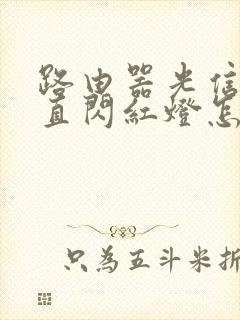 路由器光信
直閃紅燈怎
只為五斗米折